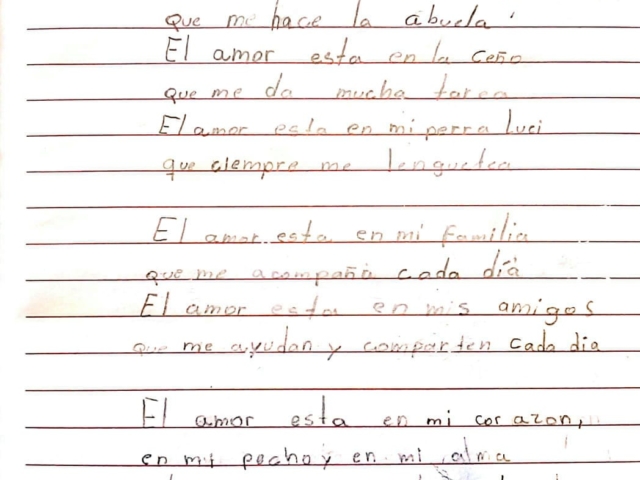 que me hace la abuela.
El amor esta en la ceño
que me da mucha tarea
El amor esta en mi perra luci
que ciempre me lenguetea
El amor esta en mi familia
que me acompaña cada día
El amor esta en mis amigos
que me ayudan y comparten cada dia
El amor esta en mi corazon,
en mi pecho y en mi alma